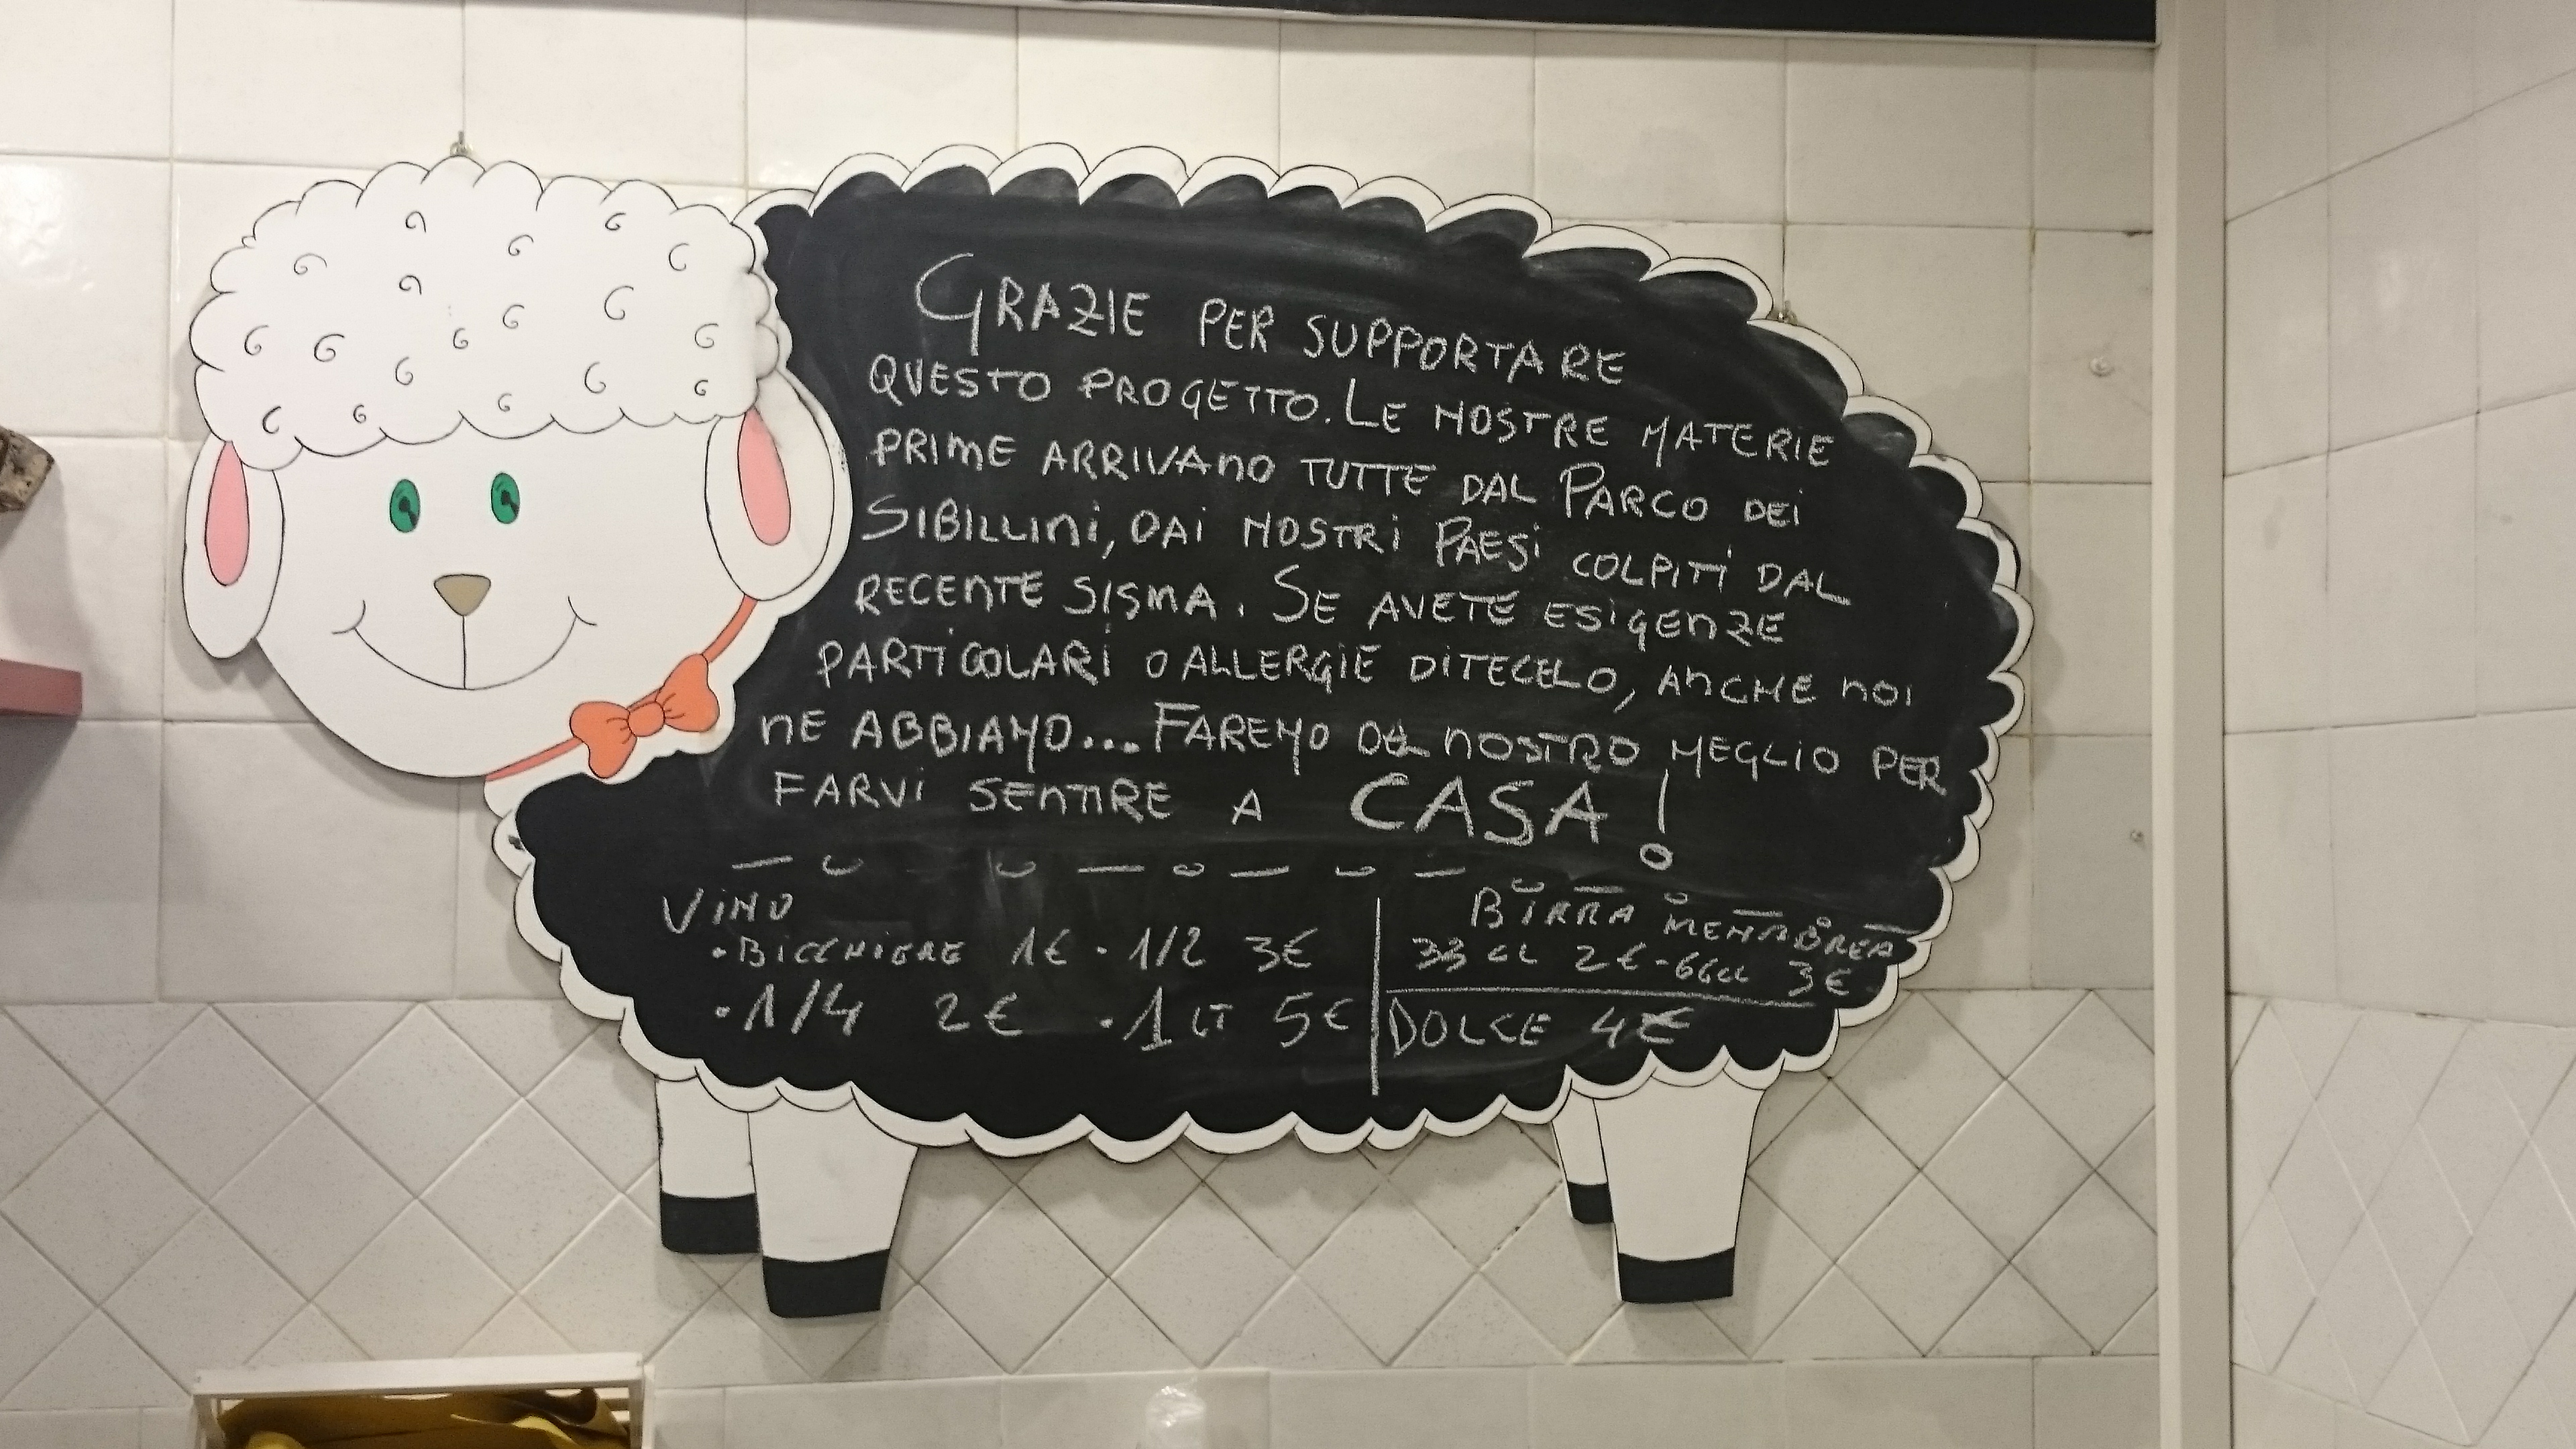 GRAZIE PER SUPPORTARE
QUESTO PROGETTO. LE NOSTRE MATERIE
PRIME ARRIVANO TUTTE DAL PARCO DEI
SIBILLINI, DAI NOSTRI PAESI COLPITI DAL
RECENTE SISMA. SE AVETE ESIGENZE
PARTICOLARI O ALLERGIE DITECELO, ANCHE NOI
NE ABBIAMO... FAREMO DEL NOSTRO MEGLIO PER
FARVI SENTIRE A CASA!
VINO
• BICCHIERE 1€ • 1/2 3€
• 1/4 2€ • 1 LT 5€
BIRRA MENABREA
33 CL 2€ - 66CL 3€
DOLCE 4€